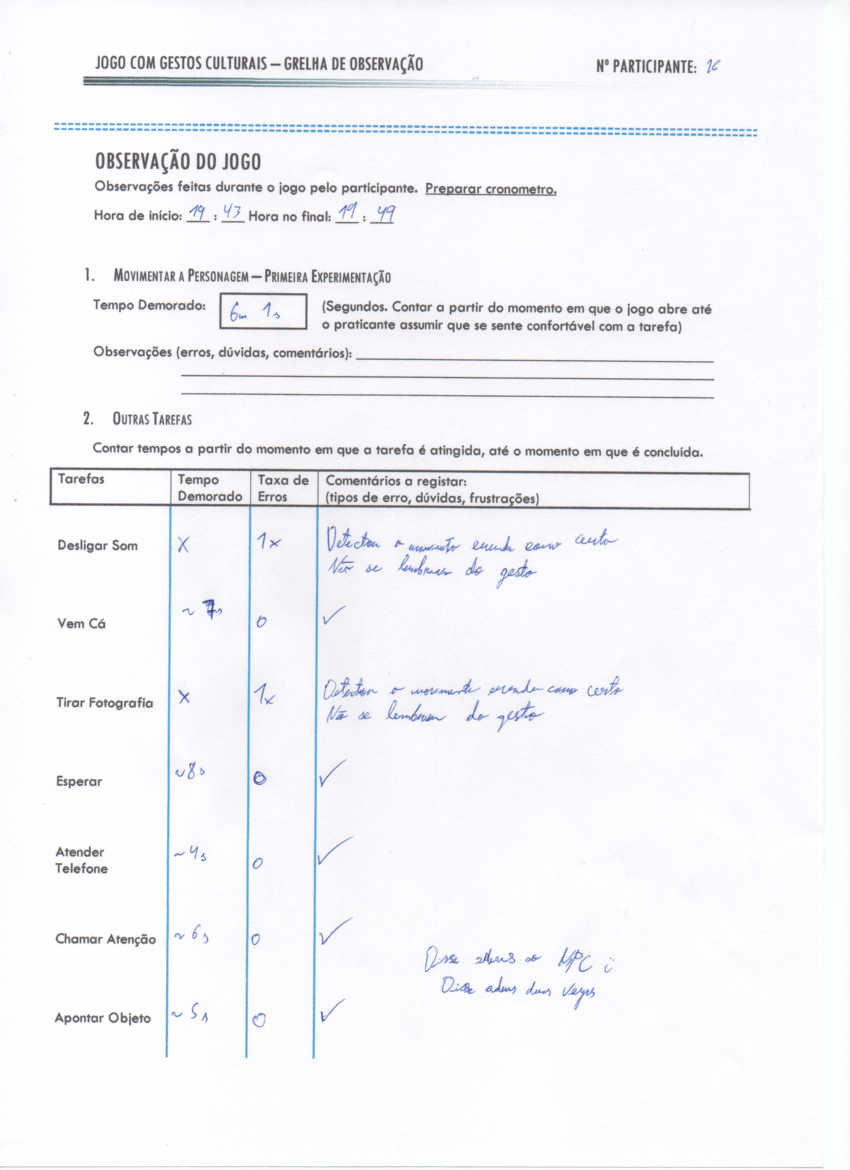 JOGO COM GESTOS CULTURAIS – GRELHA DE OBSERVAÇÃO Nº PARTICIPANTE: 16
OBSERVAÇÃO DO JOGO
Observações feitas durante o jogo pelo participante. Preparar cronometro.
Hora de início: 19 : 43 Hora no final: 19 : 49
1. MOVIMENTAR A PERSONAGEM – PRIMEIRA EXPERIMENTAÇÃO
Tempo Demorado: 6m 1s (Segundos. Contar a partir do momento em que o jogo abre até
o praticante assumir que se sente confortável com a tarefa)
Observações (erros, dúvidas, comentários):
2. OUTRAS TAREFAS
Contar tempos a partir do momento em que a tarefa é atingida, até o momento em que é concluída.
Tarefas Tempo Taxa de Comentários a registar:
Demorado Erros (tipos de erro, dúvidas, frustrações)
Desligar Som X 1x Detectou o movimento errado como certo
Não se lembrava do gesto
Vem Cá ~ 7s 0 ✓
Tirar Fotografia X 1x Detectou o movimento errado como certo
Não se lembrava do gesto
Esperar ~8s 0 ✓
Atender ~4s 0 ✓
Telefone
Chamar Atenção ~ 6s 0 ✓
Disse adeus ao NPC
Disse adeus duas vezes
Apontar Objeto ~ 5s 0 ✓